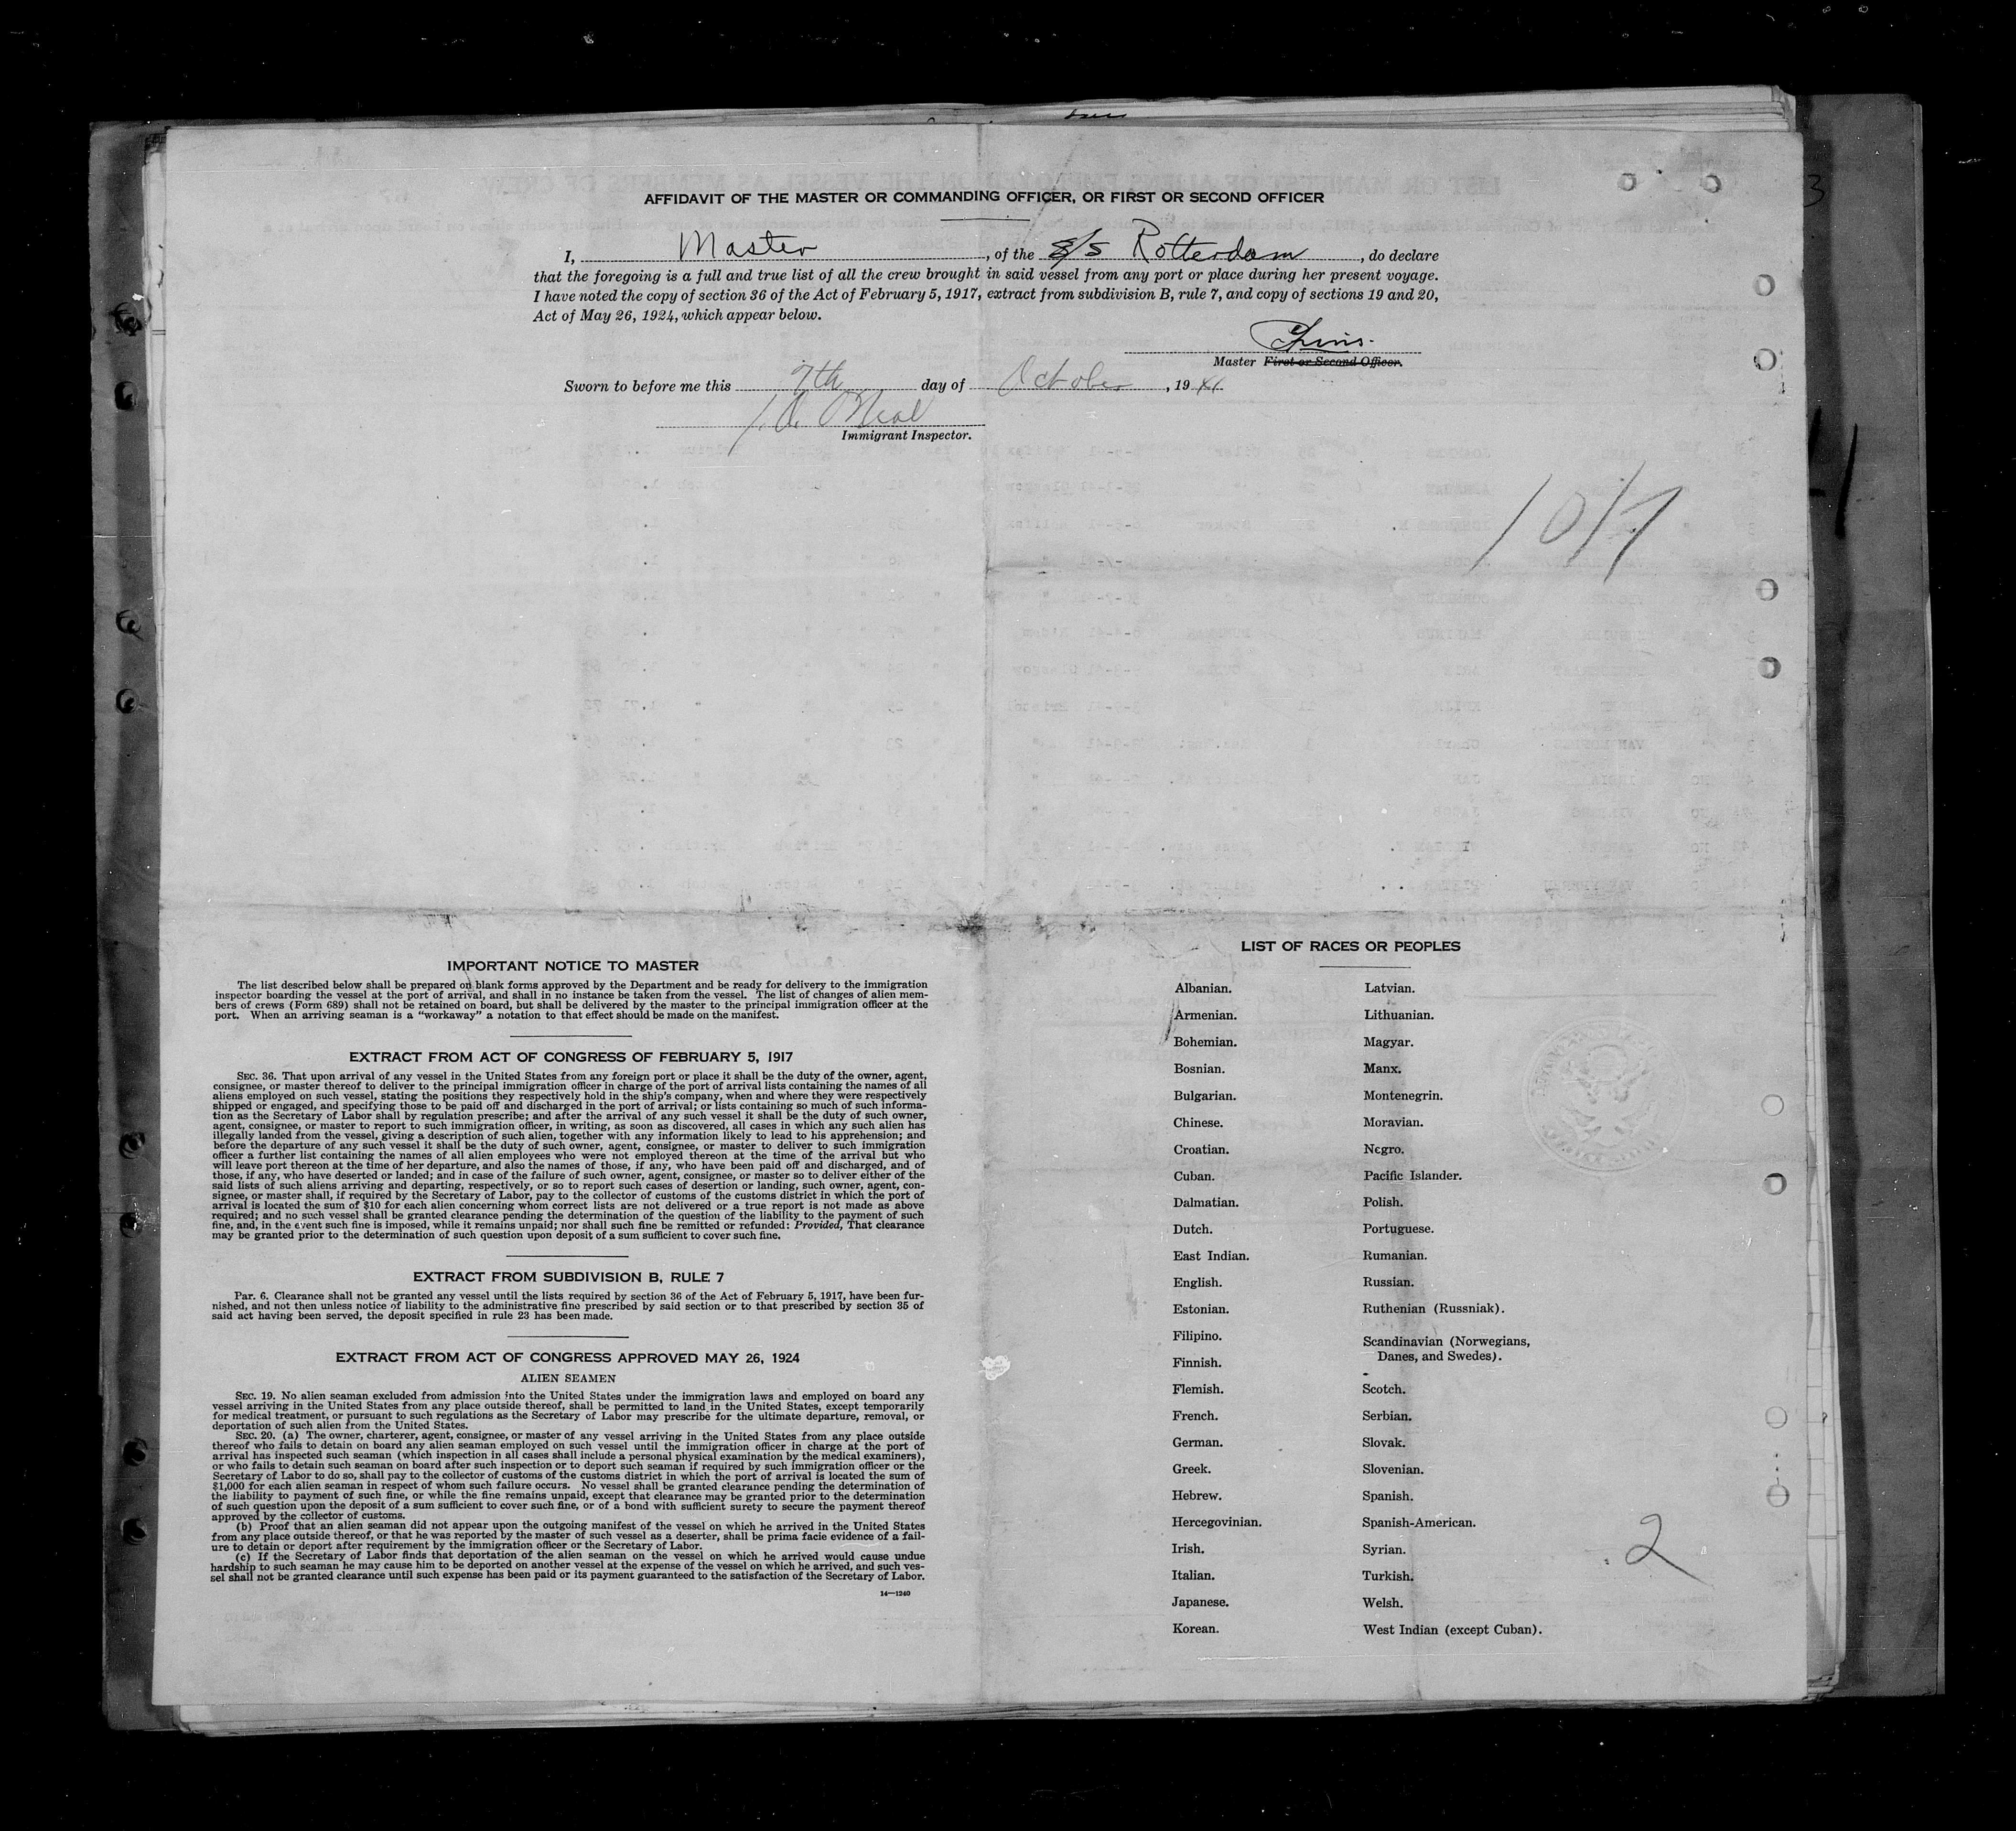 AFFIDAVIT OF THE MASTER OR COMMANDING OFFICER, OR FIRST OR SECOND OFFICER
I, Master, of the S/S Rotterdam, do declare
that the foregoing is a full and true list of all the crew brought in said vessel from any port or place during her present voyage.
I have noted the copy of section 36 of the Act of February 5, 1917, extract from subdivision B, rule 7, and copy of sections 19 and 20,
Act of May 26, 1924, which appear below.
Master First or Second Officer.
Sworn to before me this 7th day of October, 1941
Immigrant Inspector.
10/7
IMPORTANT NOTICE TO MASTER
The list described below shall be prepared on blank forms approved by the Department and be ready for delivery to the immigration
inspector boarding the vessel at the port of arrival, and shall in no instance be taken from the vessel. The list of changes of alien mem-
bers of crews (Form 689) shall not be retained on board, but shall be delivered by the master to the principal immigration officer at the
port. When an arriving seaman is a "workaway" a notation to that effect should be made on the manifest.
EXTRACT FROM ACT OF CONGRESS OF FEBRUARY 5, 1917
SEC. 36. That upon arrival of any vessel in the United States from any foreign port or place it shall be the duty of the owner, agent,
consignee, or master thereof to deliver to the principal immigration officer in charge of the port of arrival lists containing the names of all
aliens employed on such vessel, stating the positions they respectively hold in the ship's company, when and where they were respectively
shipped or engaged, and specifying those to be paid off and discharged in the port of arrival; or lists containing so much of such informa-
tion as the Secretary of Labor shall by regulation prescribe; and after the arrival of any such vessel it shall be the duty of such owner,
agent, consignee, or master to report to such immigration officer, in writing, as soon as discovered, all cases in which any such alien has
illegally landed from the vessel, giving a description of such alien, together with any information likely to lead to his apprehension; and
before the departure of any such vessel it shall be the duty of such owner, agent, consignee, or master to deliver to such immigration
officer a further list containing the names of all alien employees who were not employed thereon at the time of the arrival but who
will leave port thereon at the time of her departure, and also the names of those, if any, who have been paid off and discharged, and of
those, if any, who have deserted or landed; and in case of the failure of such owner, agent, consignee, or master so to deliver either of the
said lists of such aliens arriving and departing, respectively, or so to report such cases of desertion or landing, such owner, agent, con-
signee, or master shall, if required by the Secretary of Labor, pay to the collector of customs of the customs district in which the port of
arrival is located the sum of $10 for each alien concerning whom correct lists are not delivered or a true report is not made as above
required; and no such vessel shall be granted clearance pending the determination of the question of the liability to the payment of such
fine, and, in the event such fine is imposed, while it remains unpaid; nor shall such fine be remitted or refunded: Provided, That clearance
may be granted prior to the determination of such question upon deposit of a sum sufficient to cover such fine.
EXTRACT FROM SUBDIVISION B, RULE 7
Par. 6. Clearance shall not be granted any vessel until the lists required by section 36 of the Act of February 5, 1917, have been fur-
nished, and not then unless notice of liability to the administrative fine prescribed by said section or to that prescribed by section 35 of
said act having been served, the deposit specified in rule 23 has been made.
EXTRACT FROM ACT OF CONGRESS APPROVED MAY 26, 1924
ALIEN SEAMEN
SEC. 19. No alien seaman excluded from admission into the United States under the immigration laws and employed on board any
vessel arriving in the United States from any place outside thereof, shall be permitted to land in the United States, except temporarily
for medical treatment, or pursuant to such regulations as the Secretary of Labor may prescribe for the ultimate departure, removal, or
deportation of such alien from the United States.
SEC. 20. (a) The owner, charterer, agent, consignee, or master of any vessel arriving in the United States from any place outside
thereof who fails to detain on board any alien seaman employed on such vessel until the immigration officer in charge at the port of
arrival has inspected such seaman (which inspection in all cases shall include a personal physical examination by the medical examiners),
or who fails to detain such seaman on board after such inspection or to deport such seaman if required by such immigration officer or the
Secretary of Labor to do so, shall pay to the collector of customs of the customs district in which the port of arrival is located the sum of
$1,000 for each alien seaman in respect of whom such failure occurs. No vessel shall be granted clearance pending the determination of
the liability to payment of such fine, or while the fine remains unpaid, except that clearance may be granted prior to the determination
of such question upon the deposit of a sum sufficient to cover such fine, or of a bond with sufficient surety to secure the payment thereof
approved by the collector of customs.
(b) Proof that an alien seaman did not appear upon the outgoing manifest of the vessel on which he arrived in the United States
from any place outside thereof, or that he was reported by the master of such vessel as a deserter, shall be prima facie evidence of a fail-
ure to detain or deport after requirement by the immigration officer or the Secretary of Labor.
(c) If the Secretary of Labor finds that deportation of the alien seaman on the vessel on which he arrived would cause undue
hardship to such seaman he may cause him to be deported on another vessel at the expense of the vessel on which he arrived, and such ves-
sel shall not be granted clearance until such expense has been paid or its payment guaranteed to the satisfaction of the Secretary of Labor.
14—1240
LIST OF RACES OR PEOPLES
Albanian.
Armenian.
Bohemian.
Bosnian.
Bulgarian.
Chinese.
Croatian.
Cuban.
Dalmatian.
Dutch.
East Indian.
English.
Estonian.
Filipino.
Finnish.
Flemish.
French.
German.
Greek.
Hebrew.
Hercegovinian.
Irish.
Italian.
Japanese.
Korean.
Latvian.
Lithuanian.
Magyar.
Manx.
Montenegrin.
Moravian.
Negro.
Pacific Islander.
Polish.
Portuguese.
Rumanian.
Russian.
Ruthenian (Russniak).
Scandinavian (Norwegians,
Danes, and Swedes).
Scotch.
Serbian.
Slovak.
Slovenian.
Spanish.
Spanish-American.
Syrian.
Turkish.
Welsh.
West Indian (except Cuban).
2